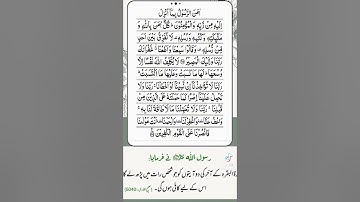 اٰمَنَ الرَّسُوْلُ بِمَاۤ اُنْزِلَ
اِلَيْهِ مِنْ رَّبِّهٖ وَ الْمُؤْمِنُوْنَ ؕ كُلٌّ اٰمَنَ بِاللّٰهِ وَ
مَلٰٓىِٕكَتِهٖ وَ كُتُبِهٖ وَ رُسُلِهٖ ۫ لَا نُفَرِّقُ بَيْنَ اَحَدٍ
مِّنْ رُّسُلِهٖ ۫ وَ قَالُوْا سَمِعْنَا وَ اَطَعْنَا ٘ غُفْرَانَكَ
رَبَّنَا وَ اِلَيْكَ الْمَصِيْرُ لَا يُكَلِّفُ اللّٰهُ نَفْسًا اِلَّا
وُسْعَهَا ؕ لَهَا مَا كَسَبَتْ وَ عَلَيْهَا مَا اكْتَسَبَتْ ؕ
رَبَّنَا لَا تُؤَاخِذْنَاۤ اِنْ نَّسِيْنَاۤ اَوْ اَخْطَاْنَا ۚ رَبَّنَا وَ لَا
تَحْمِلْ عَلَيْنَاۤ اِصْرًا كَمَا حَمَلْتَهٗ عَلَى الَّذِيْنَ مِنْ
قَبْلِنَا ۚ رَبَّنَا وَ لَا تُحَمِّلْنَا مَا لَا طَاقَةَ لَنَا بِهٖ ۚ
وَ اعْفُ عَنَّا ٙ وَ اغْفِرْ لَنَا ٙ وَ ارْحَمْنَا ٙ اَنْتَ مَوْلٰىنَا
فَانْصُرْنَا عَلَى الْقَوْمِ الْكٰفِرِيْنَ
رسول اللہ ﷺ نے فرمایا:
البقرہ کے آخر کی دو آیتوں کو جو شخص رات میں پڑھ لے گا
اس کے لیے کافی ہوں گی۔